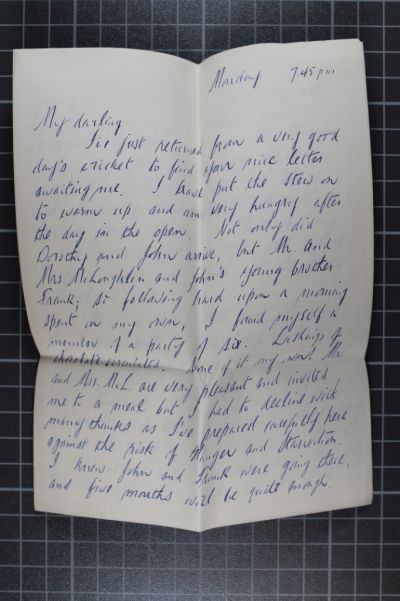 Monday 7.45 pm
My darling
I've just returned from a very good
day's cricket to find your nice letter
awaiting me. I have put the stew on
to warm up and am very hungry after
the day in the open. Not only did
Dorothy and John arrive, but Mr. and
Mrs McLoughlin and John's young brother
Frank; so following hard upon a morning
spent on my own, I found myself a
member of a party of six. Lashings of
chocolate circulated. None of it my own! Mr.
and Mrs. McL are very pleasant and invited
me to a meal but I had to decline with
many thanks as I've prepared carefully here
against the risk of Hunger and Starvation.
I knew John and Frank were going there,
and five mouths will be quite enough.